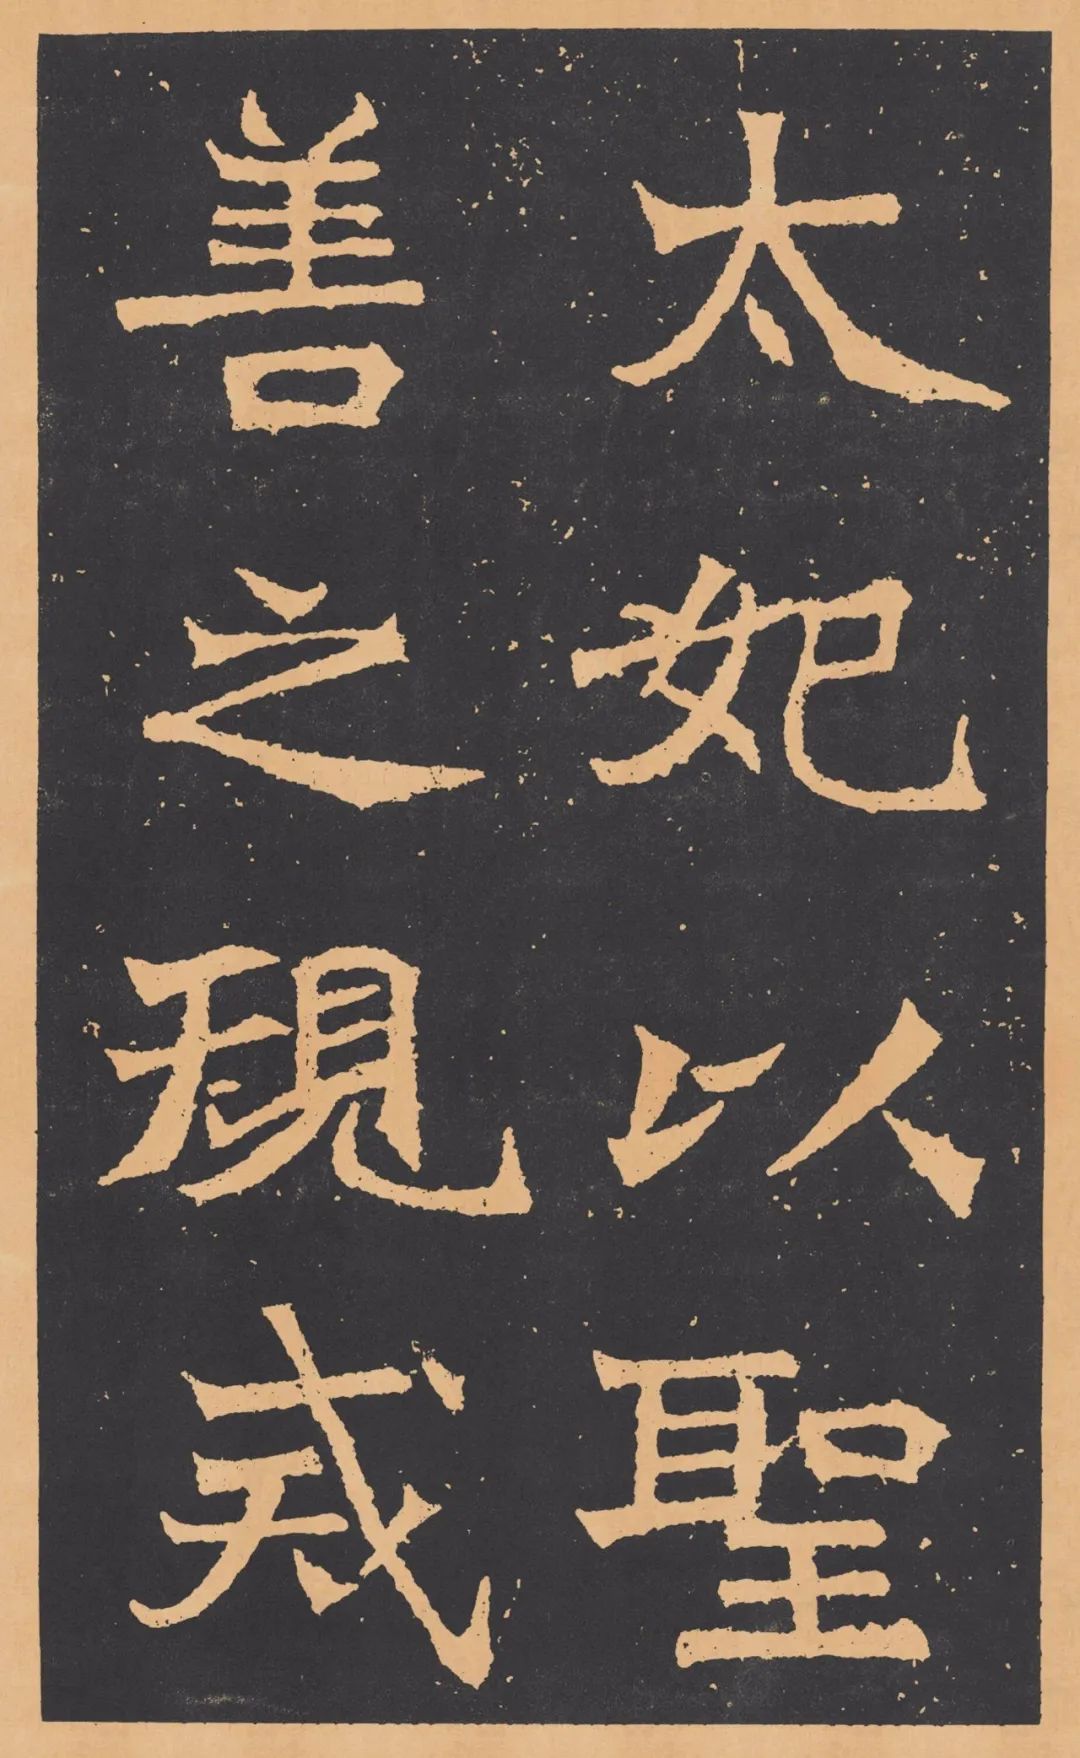 太妃以聖
善之規戒